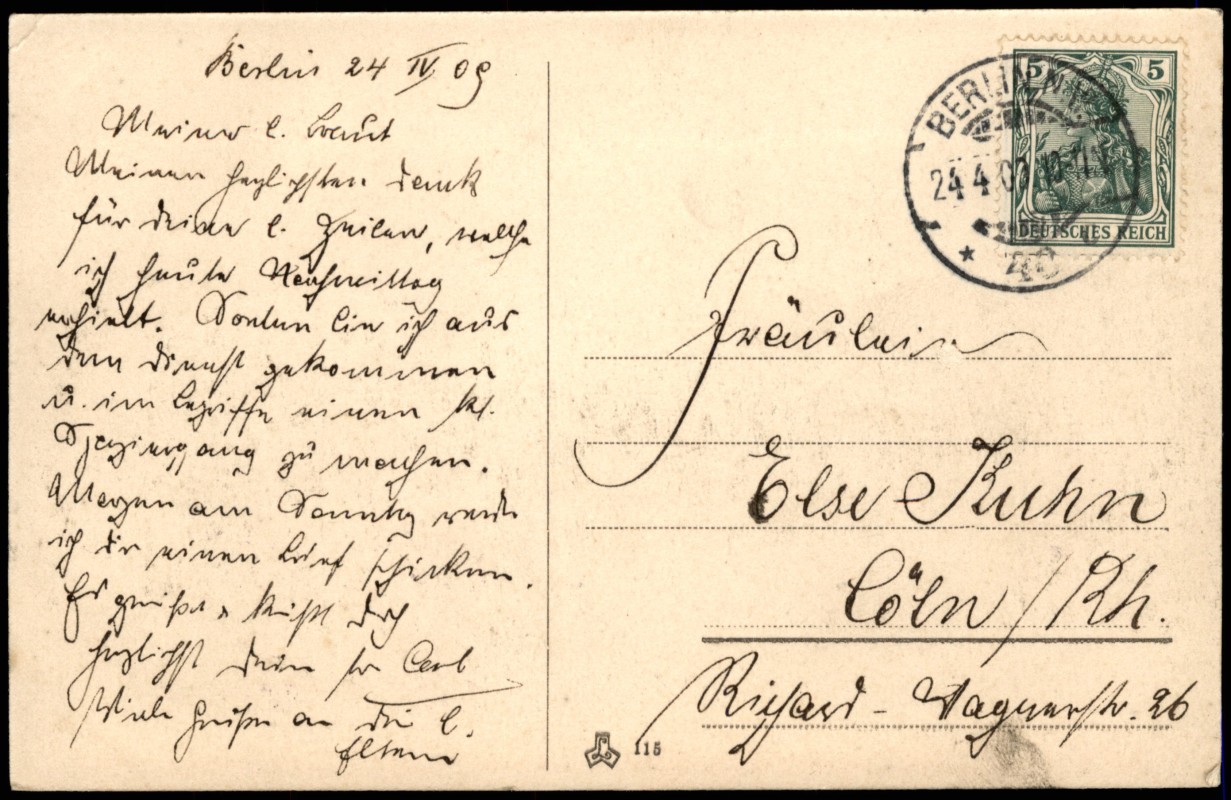 Berlin 24 IV 09
Meiner l. Braut
Meinen herzlichsten Dank
für deine l. Zeilen, welche
ich heute Nachmittag
erhielt. Soeben bin ich aus
dem Dienst gekommen
u. im Begriffe einen kl.
Spaziergang zu machen.
Morgen am Sonntag werde
ich dir einen Brief schicken.
Es grüßt u küßt dich
herzlichst dein Carl
Viele Grüße an die l.
Eltern
5 5
BERLIN N.W.
24.4.09 10-11 V
DEUTSCHES REICH
* 40
Fräulein
Else Kuhn
Cöln / Rh.
Richard-Wagnerstr. 26
115